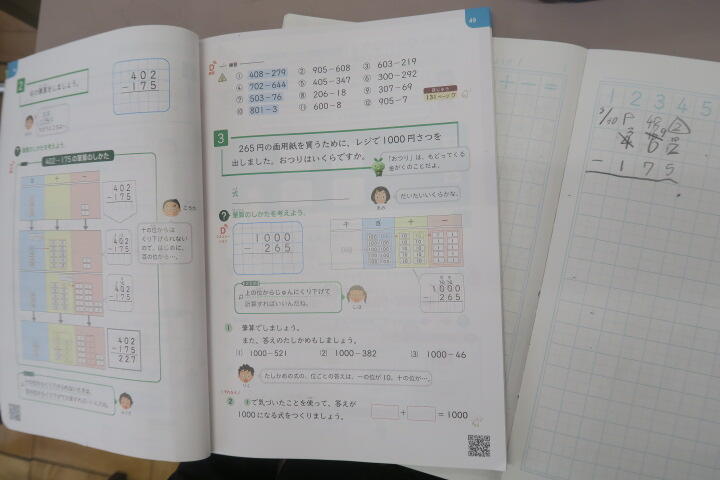 2
の筆算をしましょう。
402
-175
筆算のしかたを考えよう。
402-175の筆算のしかた
402
-175
402
-175
402
-175
402
-175
227
こうた
十の位からは
くり下げられない
ので、はじめに、
百の位から…。
49
練習
① 408-279
② 905-608
③ 603-219
④ 702-644
⑤ 405-347
⑥ 300-292
⑦ 503-76
⑧ 206-18
⑨ 307-69
⑩ 801-3
⑪ 600-8
⑫ 905-7
131ページ
3
265円の画用紙を買うために、レジで1000円さつを
出しました。おつりはいくらですか。
「おつり」は、もどってくる
お金のことだよ。
式
だいたいいくらかな。
? 筆算のしかたを考えよう。
1000
-265
千 百 十 一
1000
-265
上の位からじゅんにくり下げて
計算すればいいんだね。
しほ
1 筆算でしましょう。
また、答えのたしかめもしましょう。
(1) 1000-521
(2) 1000-382
(3) 1000-46
たしかめの式の、位ごとの答えは、一の位が10、十の位が…。
りく
2 1で気づいたことを使って、答えが
1000になる式をつくりましょう。
+ = 1000
+ - =
1 2 3 4 5
402
- 175